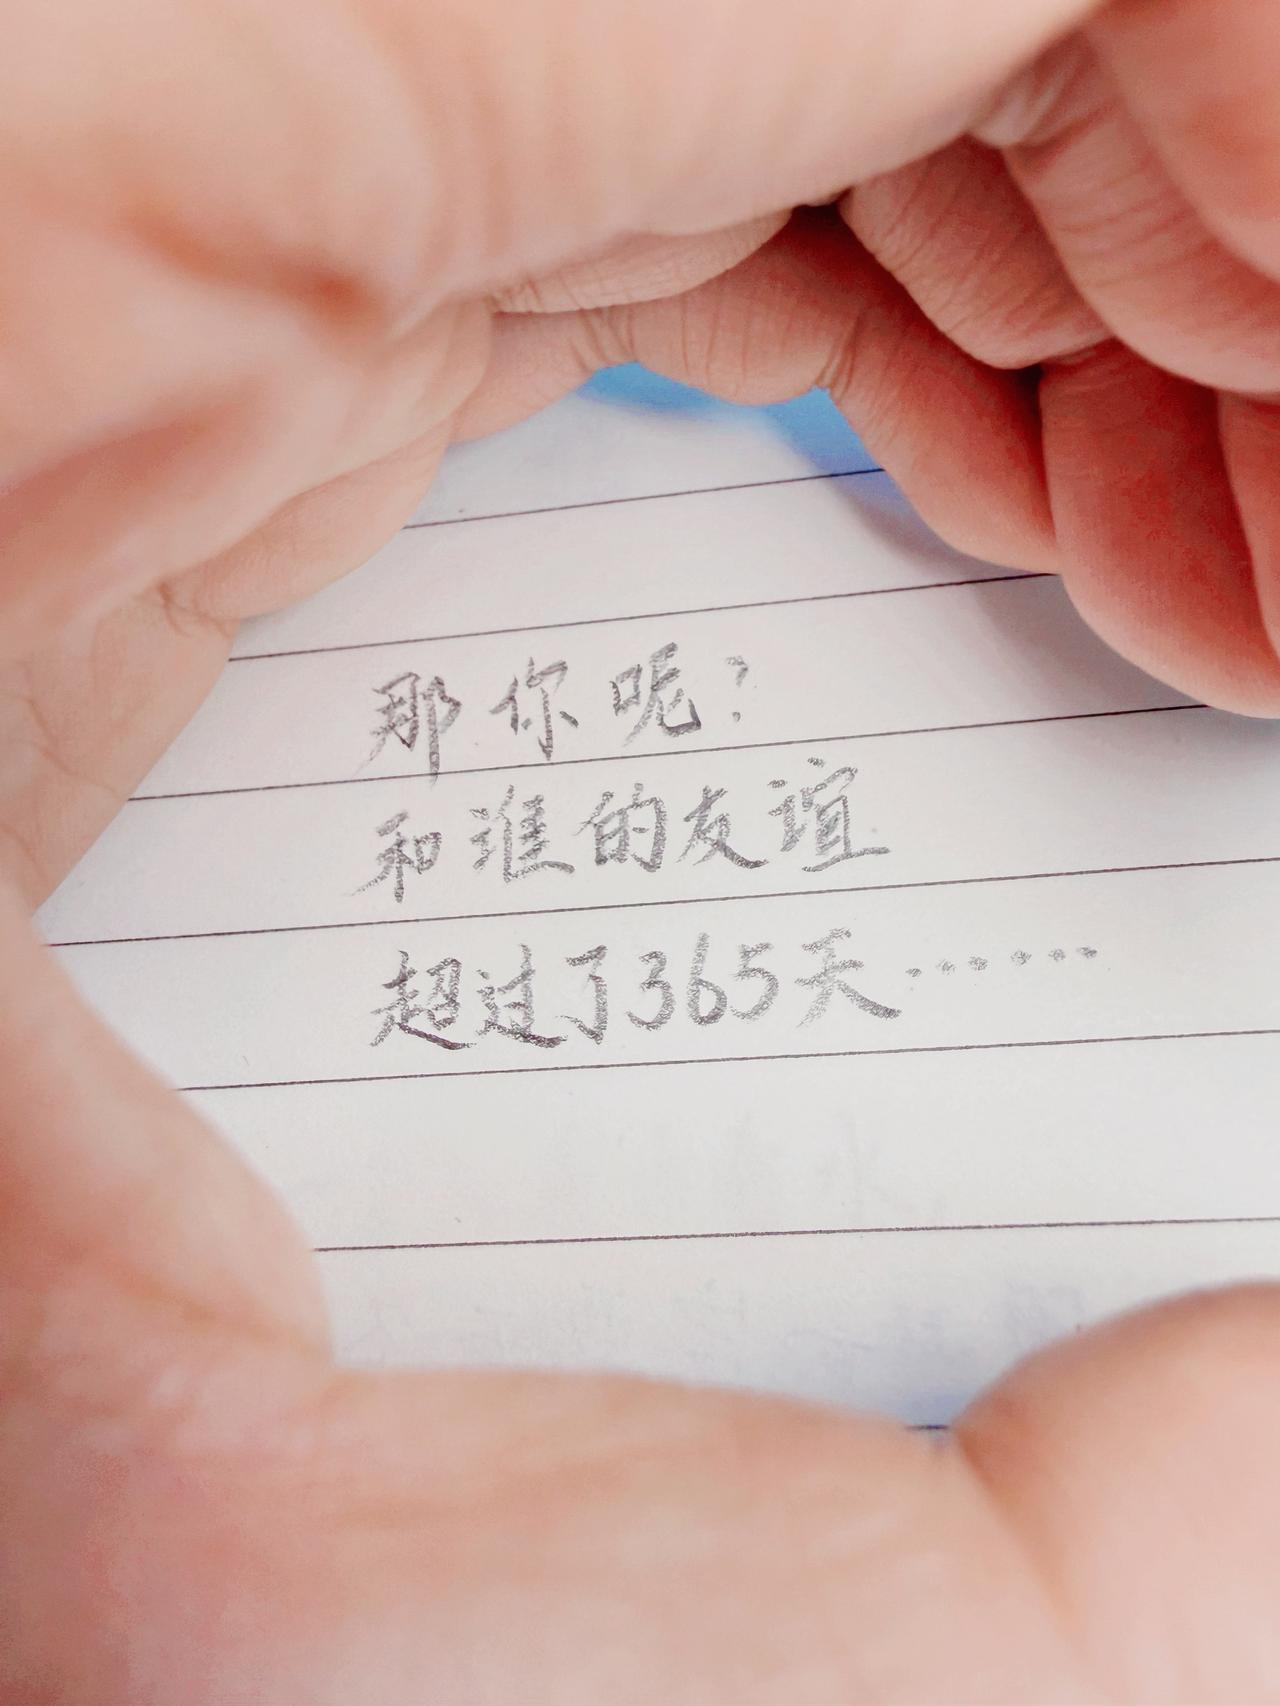 那你呢？
和谁的友谊
超过了365天……